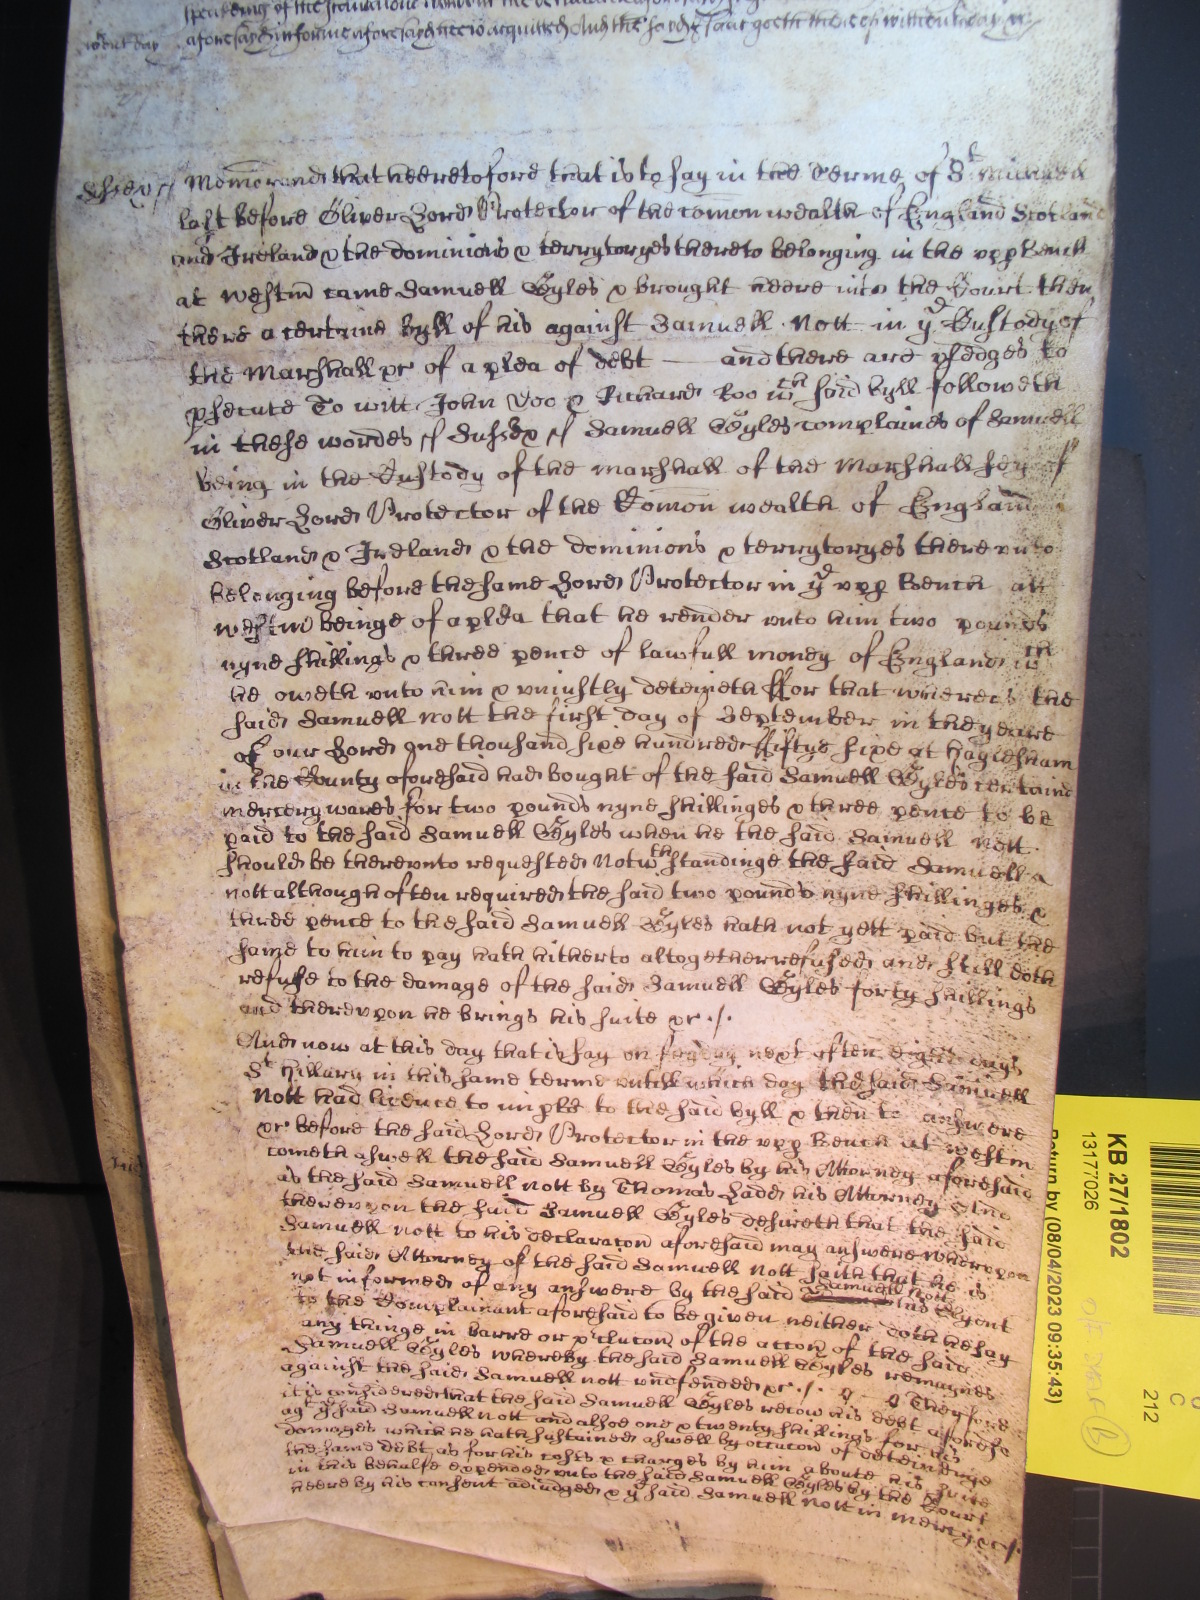 aforesayd in forme aforesayd hee is acquitted And the sayd
without day
Sussex // Memorand that heeretofore that is to say in the Terme of St Michaell
last before Oliver Lord Protector of the comon wealth of England Scotland
and Ireland & the dominions & terrytoryes thereto belonging in the upp Bench
at Westm came Samuell Gyles & brought heere into the Court then
there a certaine byll of his against Samuell Nott in ye Custody of
the Marshall &c of a plea of debt — and there are pledges to
psecute To witt John Doo & Richard Roo wch said byll followeth
in these wordes // Sussex // Samuell Gyles complaines of Samuell
being in the Custody of the Marshall of the Marshallsey of
Oliver Lord Protector of the Comon wealth of England
Scotland & Ireland & the dominions & terrytoryes there unto
belonging before the same Lord Protector in ye upp Bench att
Westm beinge of a plea that he render unto him two pounds
nyne shillings & three pence of lawfull money of England wch
he oweth unto him & uniustly deteineth ffor that whereas the
said Samuell Nott the first day of September in the yeare
of our Lord one thousand sixe hundred ffiftye sixe at Haylesham
in the County aforesaid had bought of the said Samuell Gyles certaine
mercery wares for two pounds nyne shillinges & three pence to be
paid to the said Samuell Gyles when he the said Samuell Nott
should be thereunto requested Notwthstandinge the said Samuell
Nott although often required the said two pounds nyne shillinges &
three pence to the said Samuell Gyles hath not yett paid but the
same to him to pay hath hitherto altogether refused and still doth
refuse to the damage of the said Samuell Gyles forty shillings
and thereupon he brings his suite &c ./.
And now at this day that is say on next after eight days
St Hillary in this same terme untill which day the said Samuell
Nott had licence to imple to the said byll & then to answere
&c before the said Lord Protector in the upp Bench at Westm
cometh aswell the said Samuell Gyles by his Attorney aforesaid
as the said Samuell Nott by Thomas Ladd his Attorney And
thereupon the said Samuell Gyles desireth that the said
Samuell Nott to his declaracon aforesaid may answere whereupon
the said Attorney of the said Samuell Nott saith that he is
not informed of any answere by the said Samuell Nott his Clyent
to the Complainant aforesaid to be given neither doth he say
any thinge in barre or pclucon of the accon of the said
Samuell Gyles whereby the said Samuell Gyles remaynes
against the said Samuell Nott undefended &c ./. Therefore
it is considered that the said Samuell Gyles recov his debt aforesd
agt ye said Samuell Nott and alsoe one & twenty shillings for his
damages which he hath sustained aswell by occacon of deteininge
the same debt as for his costs & charges by him aboute his suite
in this behalfe expended unto the said Samuell Gyles by the Court
heere by his consent adiudged & ye said Samuell Nott in mercy &c ./.
KB 27/1802
13177026
Return by (08/04/2023 09:35:43)
C
212